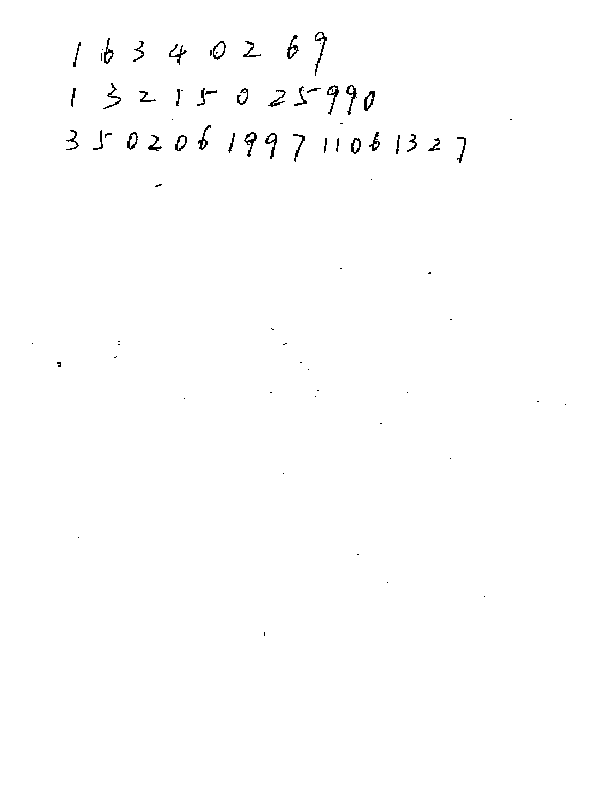 16340269
13215025990
350206199711061327